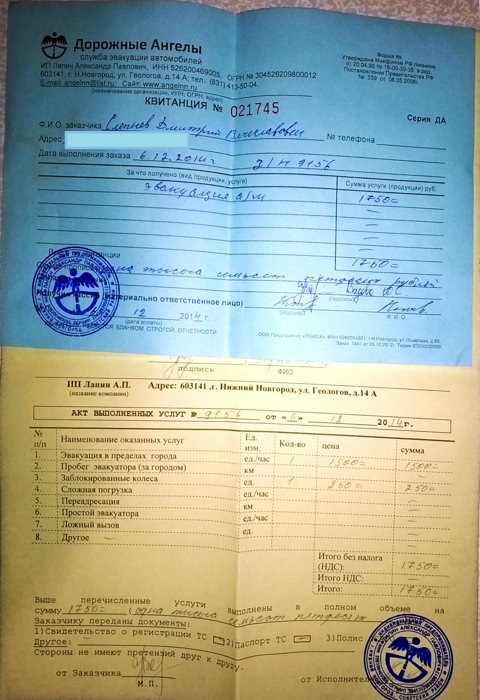 Дорожные Ангелы
служба эвакуации автомобилей
ИП Лапин Александр Павлович, ИНН 526200469005, ОГРН № 304526209800012
603141, г. Н.Новгород, ул. Геологов, д.14 А; тел.: (831) 413-50-04
E-mail: angelnn@list.ru; Сайт: www.angelnn.ru
(наименование организации, ИНН, ОГРН, адрес)
Форма №
Утверждена Минфином РФ письмом
от 20.04.95 № 16-00-30-35 в ред.
Постановления Правительства РФ
№ 359 от 06.05.2008г.
КВИТАНЦИЯ № 021745
Серия ДА
Ф.И.О. заказчика Дмитрий Вячеславович
Адрес
№ телефона
Дата выполнения заказа 6.12.2014г З/Н 9156
За что получено (вид продукции, услуги) Сумма услуги (продукции) руб.
Эвакуация а/м 1750=
1750=
материально ответственное лицо)
(подпись) (подпись) Ф.И.О.
12 2014г.
(дата оплаты)
БЛАНКОМ СТРОГОЙ ОТЧЕТНОСТИ
подпись ФИО
ИП Лапин А.П. Адрес: 603141 ,г. Нижний Новгород, ул. Геологов, д.14 А
(название компании)
АКТ ВЫПОЛНЕННЫХ УСЛУГ № 9156 от «6» 12 2014г.
№ п/п Наименование оказанных услуг Ед. изм. Кол-во цена сумма
1. Эвакуация в пределах города ед./час 1 1500= 1500=
2. Пробег эвакуатора (за городом) км
3. Заблокированные колеса ед. 1 250= 250=
4. Сложная погрузка ед./час
5. Переадресация км
6. Простой эвакуатора ед./час
7. Ложный вызов ед.
8. Другое
Итого без налога (НДС): 1750=
Итого НДС: —
Итого: 1750=
Выше перечисленные услуги выполнены в полном объеме на
сумму 1750= (одна тысяча семьсот пятьдесят
Заказчику переданы документы:
1)Свидетельство о регистрации ТС 2)Паспорт ТС 3) Полис
Другое:
Стороны не имеют претензий друг к другу.
от Заказчика от Исполнителя
М.П.